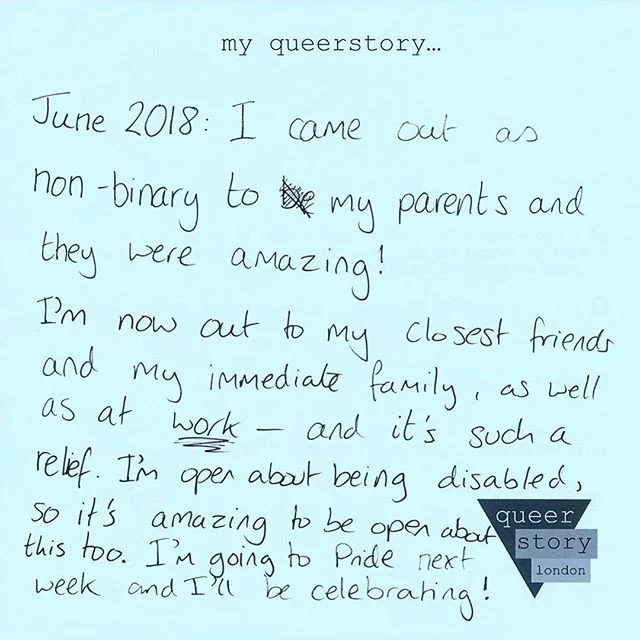 my queerstory...
June 2018: I came out as
non-binary to my parents and
they were amazing!
I'm now out to my closest friends
and my immediate family, as well
as at work — and it's such a
relief. I'm open about being disabled,
so it's amazing to be open about
this too. I'm going to Pride next
week and I'll be celebrating!
queer
story
london